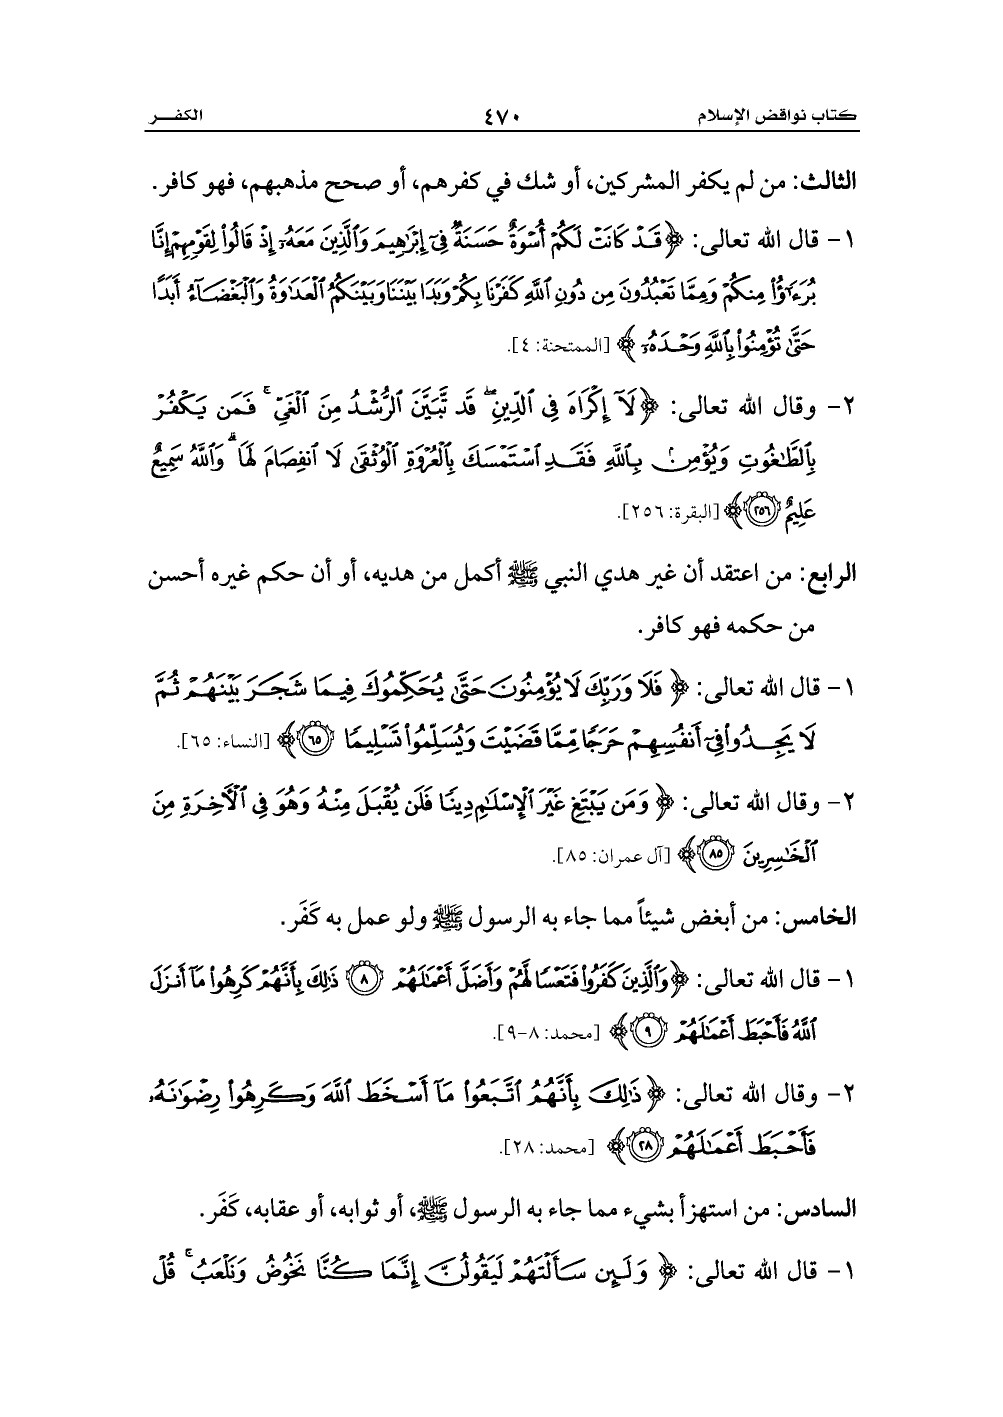 كتاب نواقض الإسلام ٤٧٠ الكفـــر
الثالث: من لم يكفر المشركين، أو شك في كفرهم، أو صحح مذهبهم، فهو كافر.
١- قال الله تعالى: ﴿قَدْ كَانَتْ لَكُمْ أُسْوَةٌ حَسَنَةٌ فِىٓ إِبْرَٰهِيمَ وَٱلَّذِينَ مَعَهُۥٓ إِذْ قَالُوا۟ لِقَوْمِهِمْ إِنَّا
بُرَءَٰٓؤُا۟ مِنكُمْ وَمِمَّا تَعْبُدُونَ مِن دُونِ ٱللَّهِ كَفَرْنَا بِكُمْ وَبَدَا بَيْنَنَا وَبَيْنَكُمُ ٱلْعَدَٰوَةُ وَٱلْبَغْضَآءُ أَبَدًا
حَتَّىٰ تُؤْمِنُوا۟ بِٱللَّهِ وَحْدَهُۥٓ﴾ [الممتحنة: ٤].
٢- وقال الله تعالى: ﴿لَآ إِكْرَاهَ فِى ٱلدِّينِ ۖ قَد تَّبَيَّنَ ٱلرُّشْدُ مِنَ ٱلْغَىِّ ۚ فَمَن يَكْفُرْ
بِٱلطَّٰغُوتِ وَيُؤْمِنۢ بِٱللَّهِ فَقَدِ ٱسْتَمْسَكَ بِٱلْعُرْوَةِ ٱلْوُثْقَىٰ لَا ٱنفِصَامَ لَهَا ۗ وَٱللَّهُ سَمِيعٌ
عَلِيمٌ ٢٥٦﴾ [البقرة: ٢٥٦].
الرابع: من اعتقد أن غير هدي النبي ﷺ أكمل من هديه، أو أن حكم غيره أحسن
من حكمه فهو كافر.
١- قال الله تعالى: ﴿فَلَا وَرَبِّكَ لَا يُؤْمِنُونَ حَتَّىٰ يُحَكِّمُوكَ فِيمَا شَجَرَ بَيْنَهُمْ ثُمَّ
لَا يَجِدُوا۟ فِىٓ أَنفُسِهِمْ حَرَجًا مِّمَّا قَضَيْتَ وَيُسَلِّمُوا۟ تَسْلِيمًا ٦٥﴾ [النساء: ٦٥].
٢- وقال الله تعالى: ﴿وَمَن يَبْتَغِ غَيْرَ ٱلْإِسْلَٰمِ دِينًا فَلَن يُقْبَلَ مِنْهُ وَهُوَ فِى ٱلْءَاخِرَةِ مِنَ
ٱلْخَٰسِرِينَ ٨٥﴾ [آل عمران: ٨٥].
الخامس: من أبغض شيئاً مما جاء به الرسول ﷺ ولو عمل به كَفَر.
١- قال الله تعالى: ﴿وَٱلَّذِينَ كَفَرُوا۟ فَتَعْسًا لَّهُمْ وَأَضَلَّ أَعْمَٰلَهُمْ ٨ ذَٰلِكَ بِأَنَّهُمْ كَرِهُوا۟ مَآ أَنزَلَ
ٱللَّهُ فَأَحْبَطَ أَعْمَٰلَهُمْ ٩﴾ [محمد: ٨-٩].
٢- وقال الله تعالى: ﴿ذَٰلِكَ بِأَنَّهُمُ ٱتَّبَعُوا۟ مَآ أَسْخَطَ ٱللَّهَ وَكَرِهُوا۟ رِضْوَٰنَهُۥ
فَأَحْبَطَ أَعْمَٰلَهُمْ ٢٨﴾ [محمد: ٢٨].
السادس: من استهزأ بشيء مما جاء به الرسول ﷺ، أو ثوابه، أو عقابه، كَفَر.
١- قال الله تعالى: ﴿وَلَئِن سَأَلْتَهُمْ لَيَقُولُنَّ إِنَّمَا كُنَّا نَخُوضُ وَنَلْعَبُ ۚ قُلْ